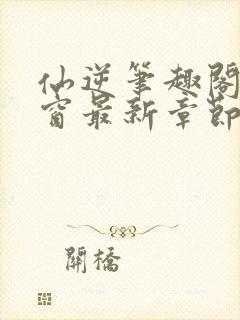 仙逆筆趣閣
窗最新章節
開橋